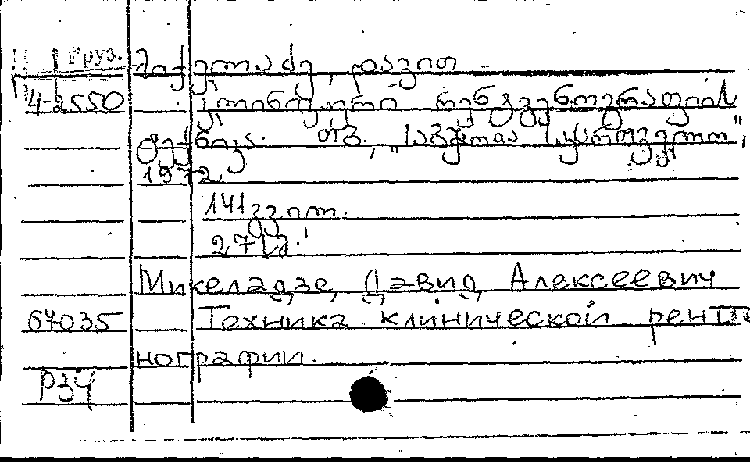 Груз. მიქელაძე, დავით
4-2550 კლინიკური რენტგენოგრაფიის
ტექნიკა. თბ., „საბჭოთა საქართველო",
1972.
141 გვ.
Микеладзе, Давид Алексеевич
67035 Техника клинической рентге
нографии.
Р34